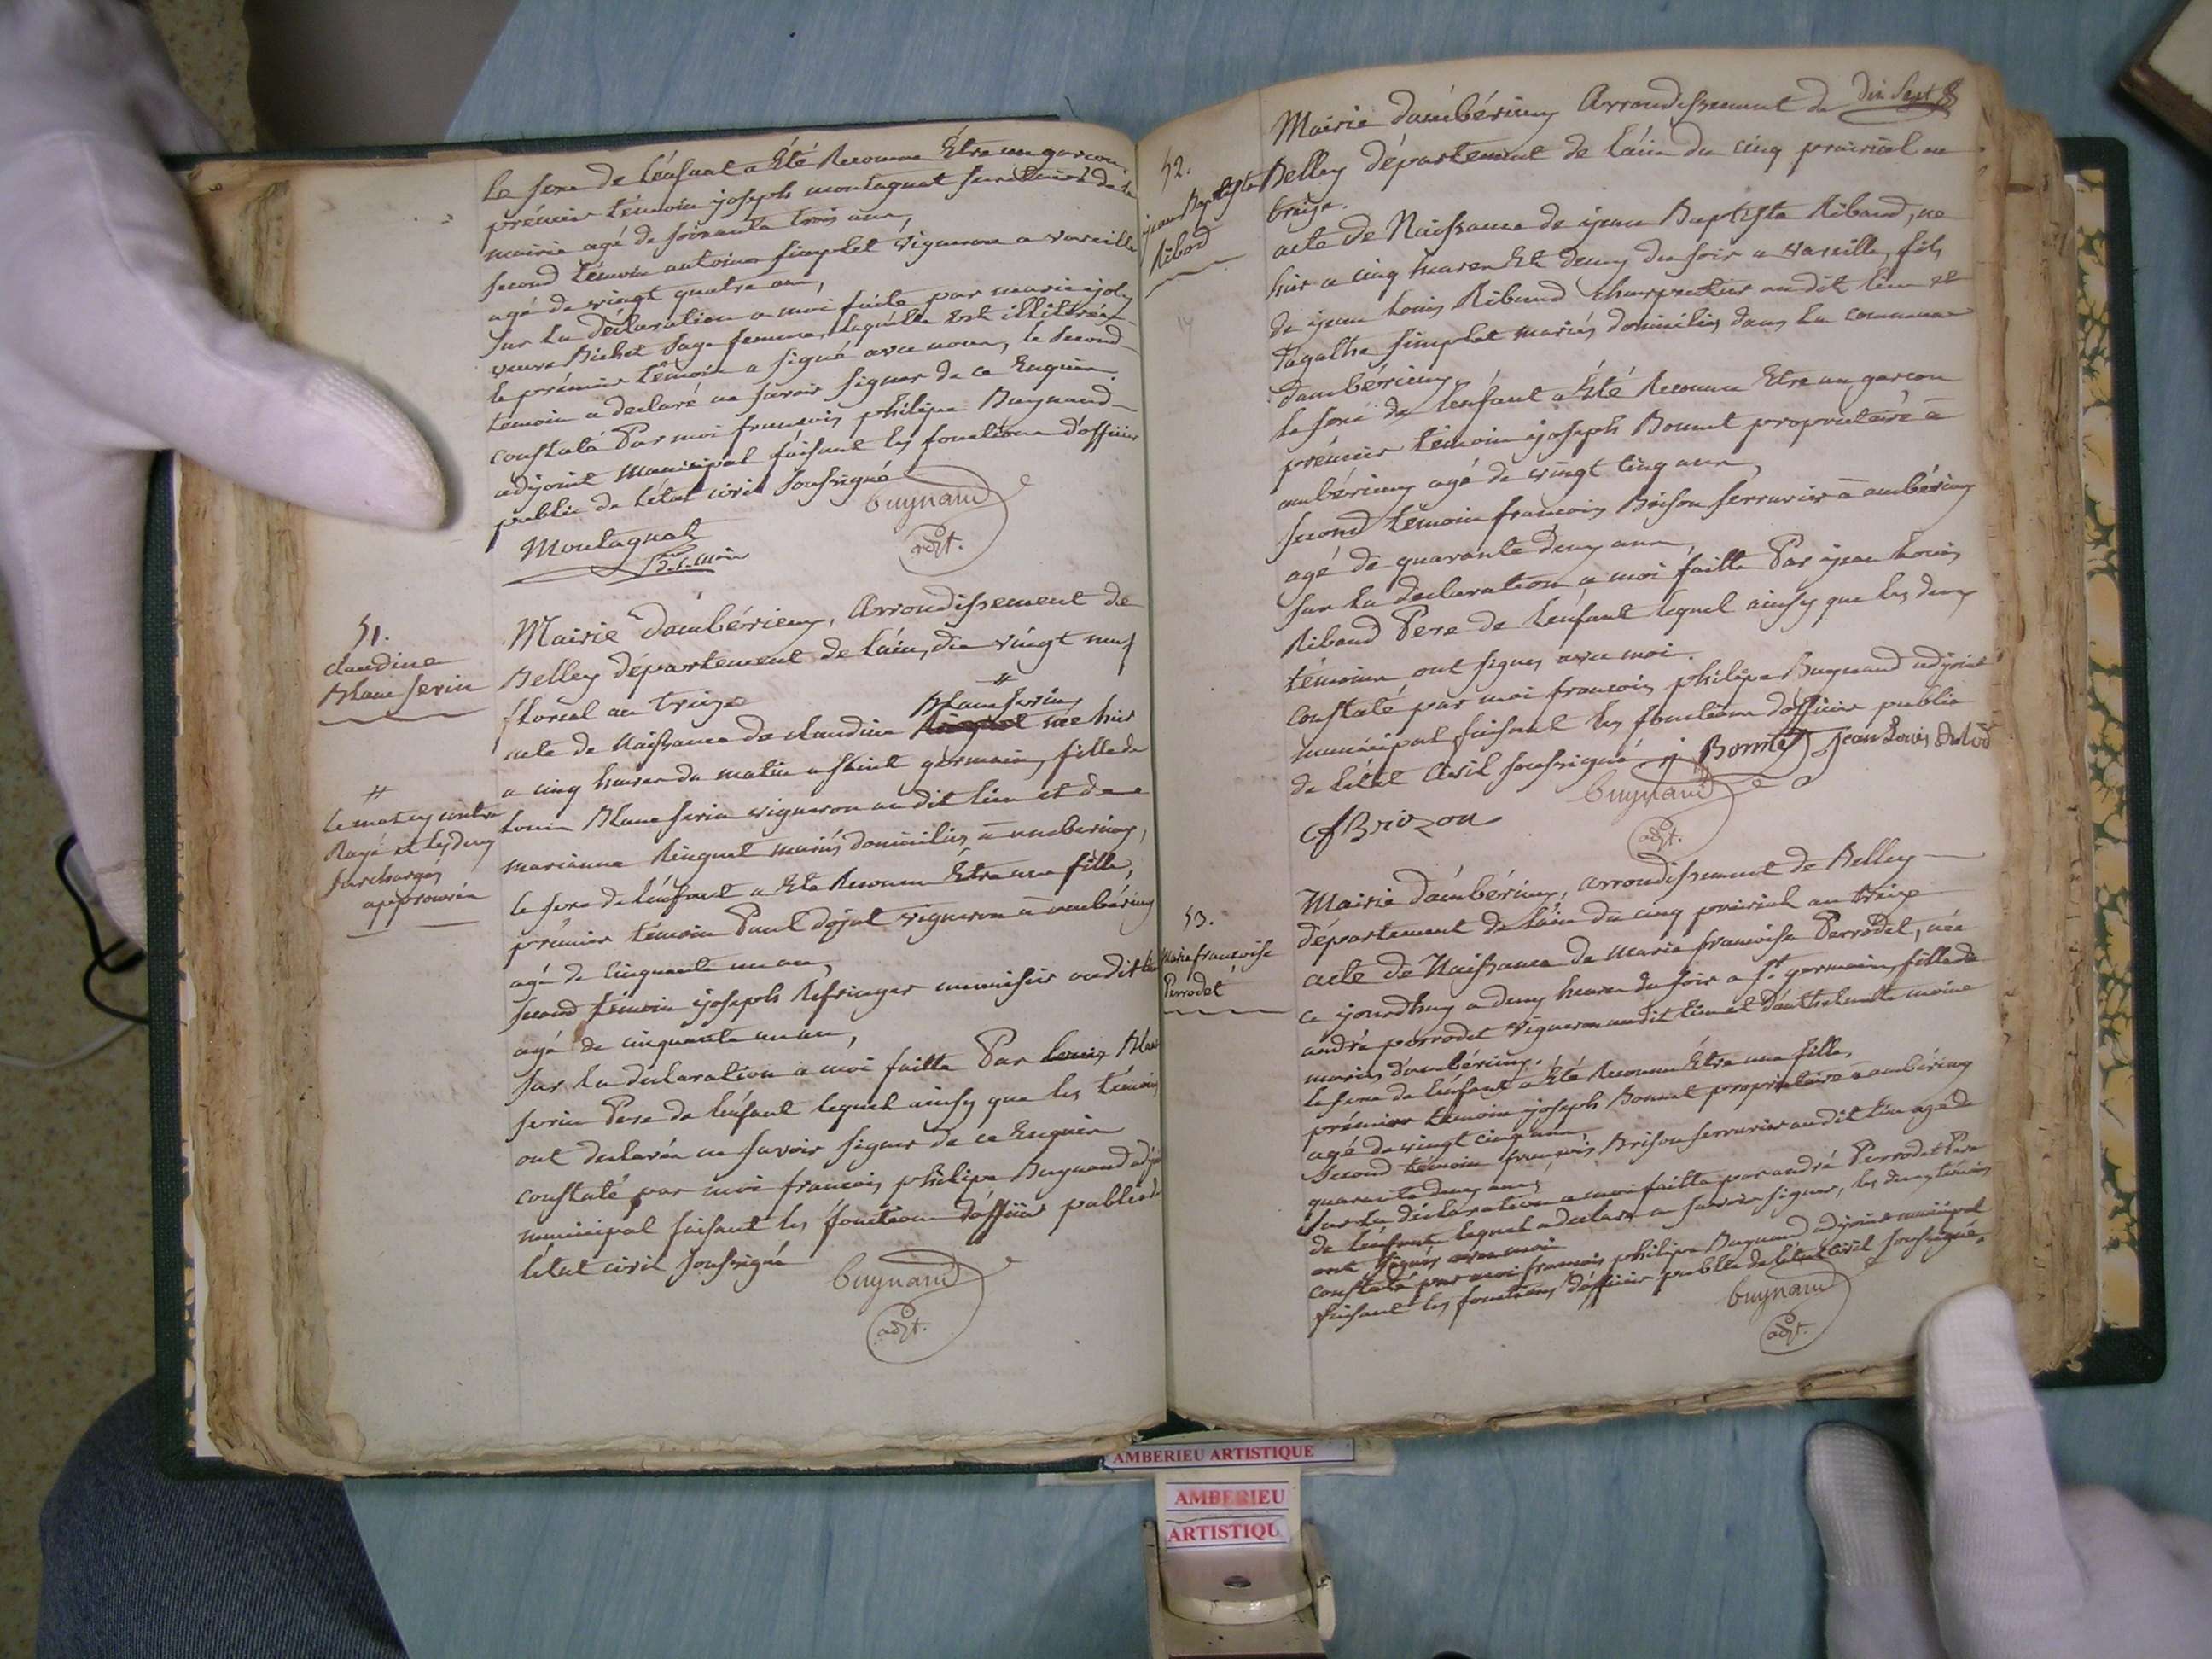 Le sexe de l'énfant a Été Reconnu Être un garcon
prémier témoin joseph montagnat secretaire de la
mairie agé de soixante trois ans,
second témoin antoine simplet vigneron a vareille
agé de vingt quatre ans,
sur la déclaration a moi faite par marie joly
veuve Bichet sage femme, laquelle Est illitérée
le prémier témoin a signé avec nous, le second
témoin a declaré ne savoir signer de ce Enquien
constaté Par moi francois philipe Buynand
adjoint municipal faisant les fonctions d'officier
public de l'état civil soussigné
buynand
adjt.
Montagnat
51.
claudine
Blanc serin
Mairie d'ambérieux, Arrondissement de
Belley département de l'ain, du vingt neuf
floréal an treize
#
Blanc serin
acte de Naissance de claudine née hier
a cinq heures du matin a saint germain, fille de
louis Blanc serin vigneron au dit lieu et de
marianne Ringuet mariés domiciliés a amberieux,
#
le mot cy contre
Rayé et les deux
surcharges
approuvés
le sexe de l'énfant a Eté Reconnu Être une fille,
prémier témoin Paul dojat vigneron a ambérieux
agé de cinquante un an,
second témoin joseph Refringer menuisier audit lieu
agé de cinquante un an,
sur la declaration a moi faitte Par louis Blanc
serin Pere de l'énfant lequel ainsy que les témoins
ont declarés ne savoir signer de ce Enquien
constaté par moi francois philipe Buynand adj
municipal faisant les fonctions d'officier public de
l'état civil soussigné
buynand
adjt.
dix Sept
52.
jean Baptiste
Ribod
Mairie d'ambérieux Arrondissement de
Belley département de l'ain du cinq prairial an
treize.
acte de Naissance de jean Baptiste Ribaud, né
hier a cinq heures Et demy du soir a vareille, fils
de jean louis Ribaud charpentier au dit lieu et
d'agathe simplet mariés domiciliés dans la commune
d'ambérieux,
le sexe de l'énfant a Eté Reconnu Etre un garcon
prémier témoin joseph Bonnet propriétaire a
ambérieux agé de vingt cinq ans,
second témoin francois Brison serrurier a ambérieux
agé de quarante deux ans,
sur la declaration a moi faitte Par jean louis
Ribaud Pere de l'énfant lequel ainsy que les deux
témoins ont signés avec moi.
constaté par moi francois philipe Buynand adjoint
municipal faisant les fonctions d'officier public
de l'état civil soussigné j Bonnet Jean Louis
buynand
adjt.
f Brizon
53.
Marie francoise
Perrodet
Mairie d'ambérieux, arrondissement de Belley
département de l'ain du cinq prairial an treize
acte de Naissance de marie francoise Perrodet, née
ce jourdhuy a deux heures du soir a st germain, fille de
andré perrodet vigneron audit lieu et d'anthelmette moine
mariés d'ambérieux.
le sexe de l'énfant a Été Reconnu Etre une fille,
prémier témoin joseph Bonnet propriétaire a ambérieux
agé de vingt cinq ans,
second témoin francois Brison serrurier audit lieu agé de
quarante deux ans,
sur la déclaration a moi faitte par andré Perrodet Pere
de l'énfant, lequel a declaré ne savoir signer, les deux témoins
ont signés avec moi
constaté par moi francois philipe Buynand adjoint municipal
faisant les fonctions d'officier public de l'état civil soussigné,
buynand
adjt.
AMBERIEU ARTISTIQUE
AMBERIEU
ARTISTIQU